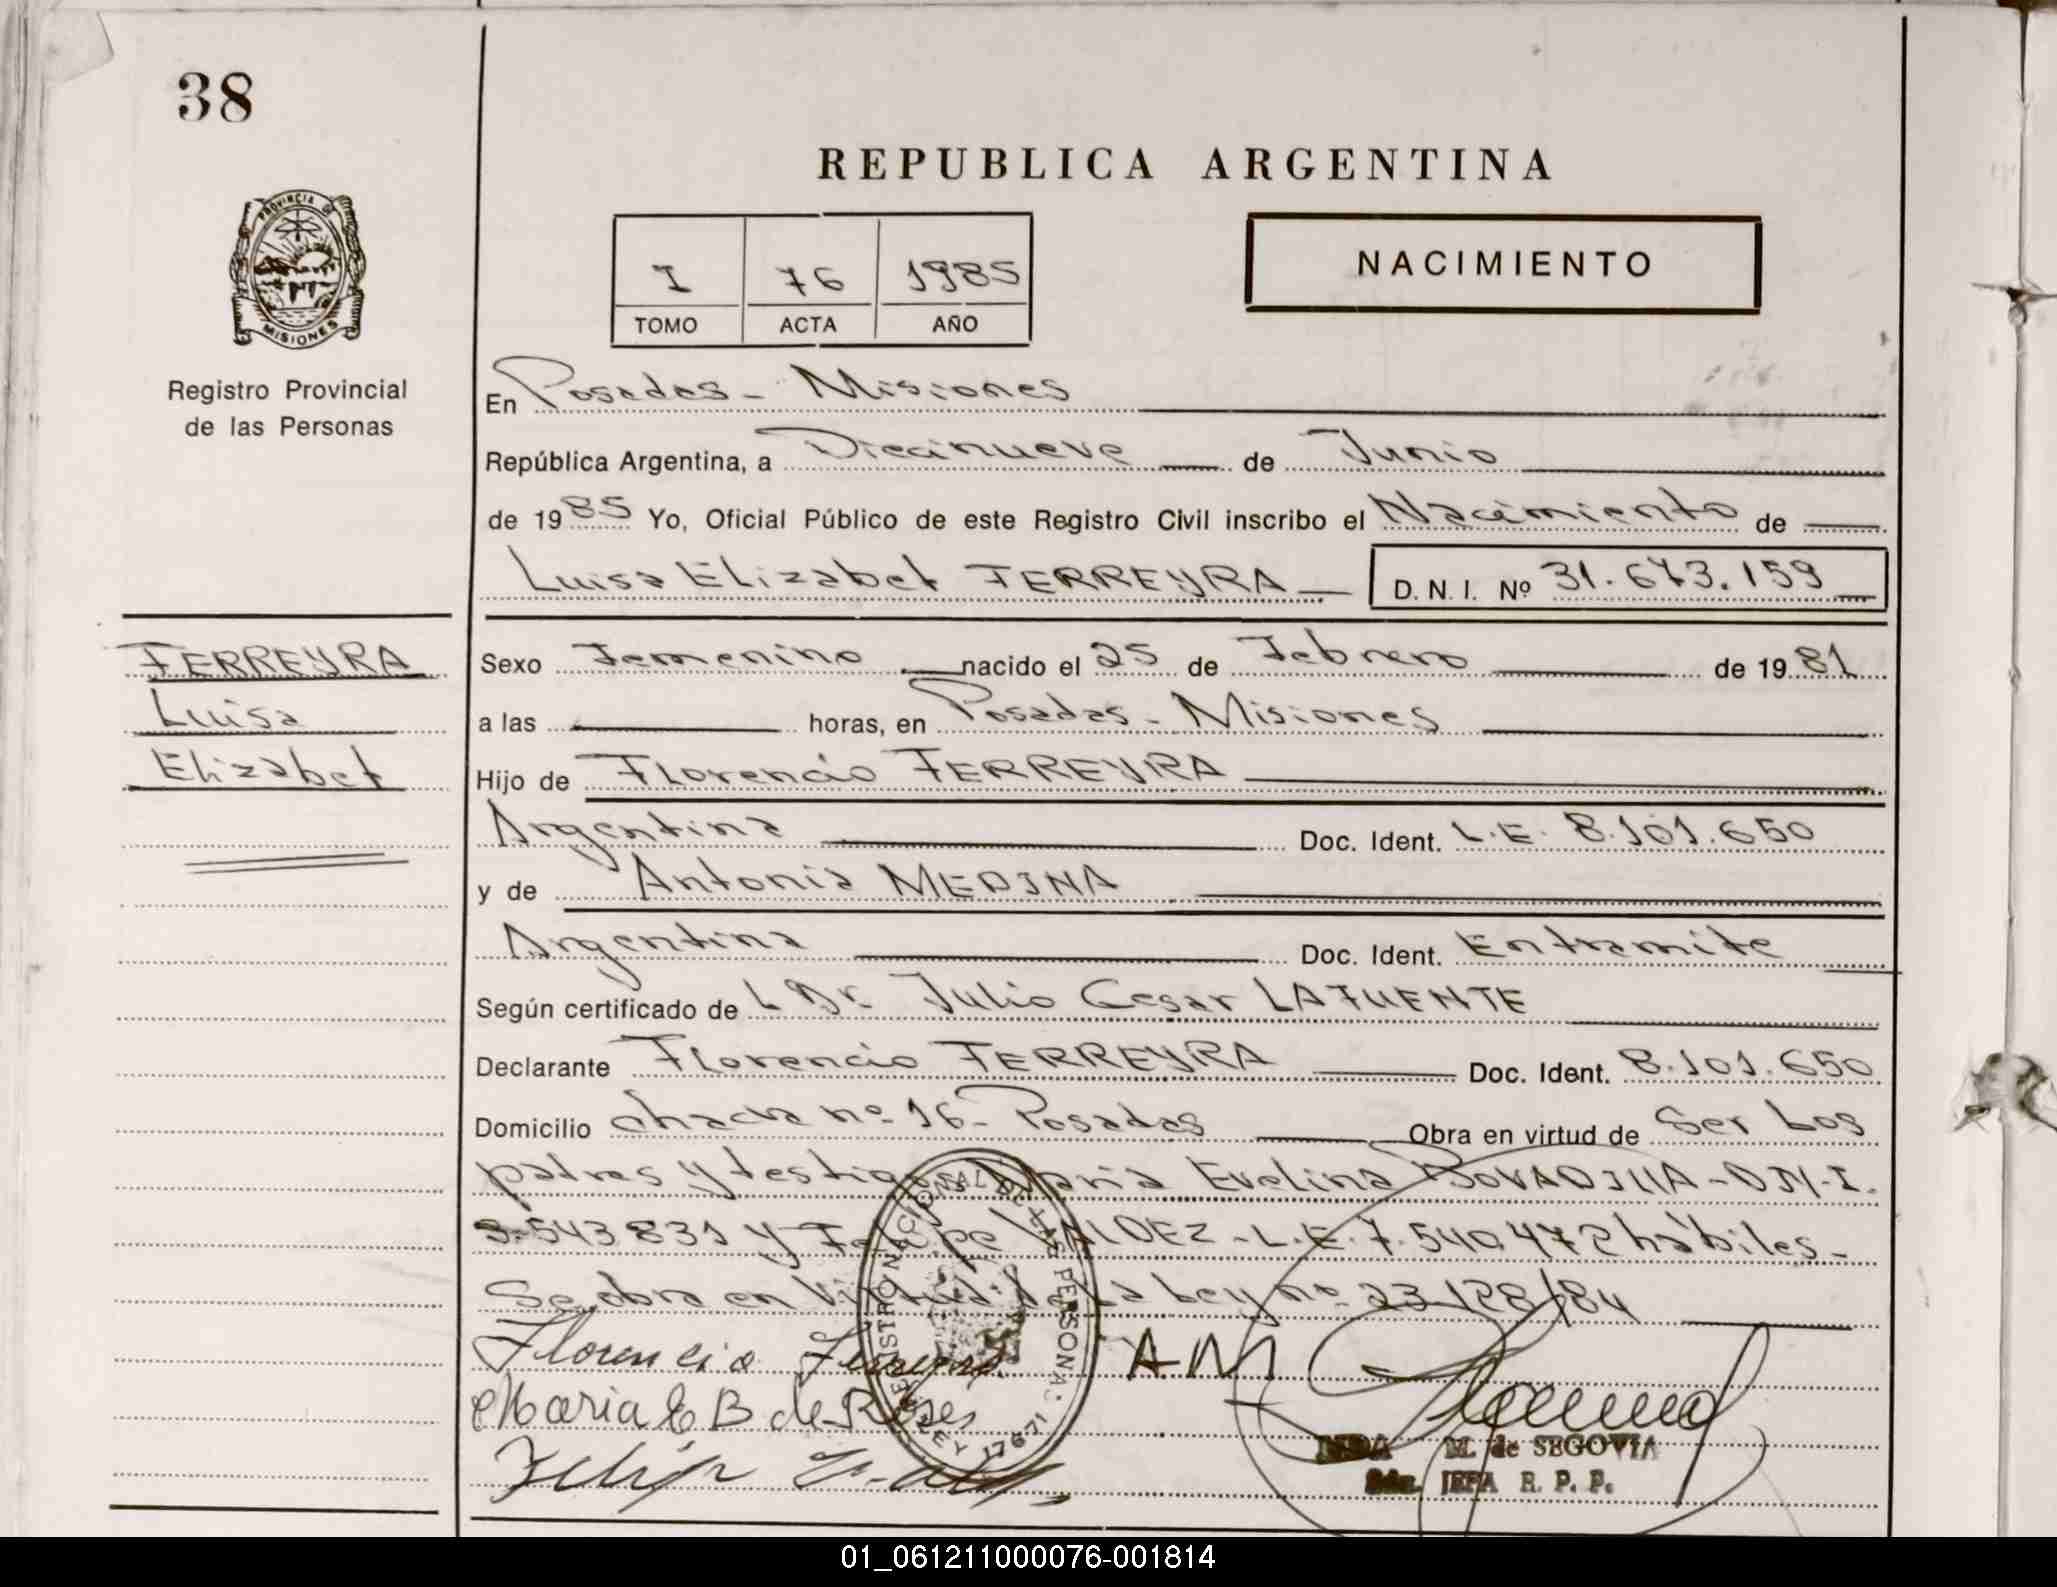 38
REPUBLICA ARGENTINA
I 76 1985
TOMO ACTA AÑO
NACIMIENTO
PROVINCIA DE
MISIONES
Registro Provincial
de las Personas
En Posadas - Misiones
República Argentina, a Diecinueve de Junio
de 1985 Yo, Oficial Público de este Registro Civil inscribo el Nacimiento de
Luisa Elizabet FERREYRA D. N. I. Nº 31.673.159
FERREYRA
Luisa
Elizabet
Sexo Femenino nacido el 25 de Febrero de 1981
a las horas, en Posadas - Misiones
Hijo de Florencio FERREYRA
Argentina Doc. Ident. L.E. 8.101.650
y de Antonia MEDINA
Argentina Doc. Ident. En tramite
Según certificado de L Dr. Julio Cesar LAFUENTE
Declarante Florencio FERREYRA Doc. Ident. 8.101.650
Domicilio chacra nº 16 - Posadas Obra en virtud de Ser Los
padres y testigos Maria Evelina BOVADILLA - DNI.
543831 y Felipe VALDEZ - L.E. 7.540.472 habiles -
Se obra en Virtud de La Ley nº 23128/84
Florencio Ferreyra A.M
Maria E B de Rojes
Felip
REGISTRO NACIONAL DE LAS PERSONAS
LEY 17671
M. de SEGOVIA
JEFA R. P. P.
01_061211000076-001814